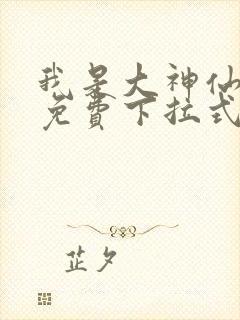 我是大神仙
免費下拉式
芷夕